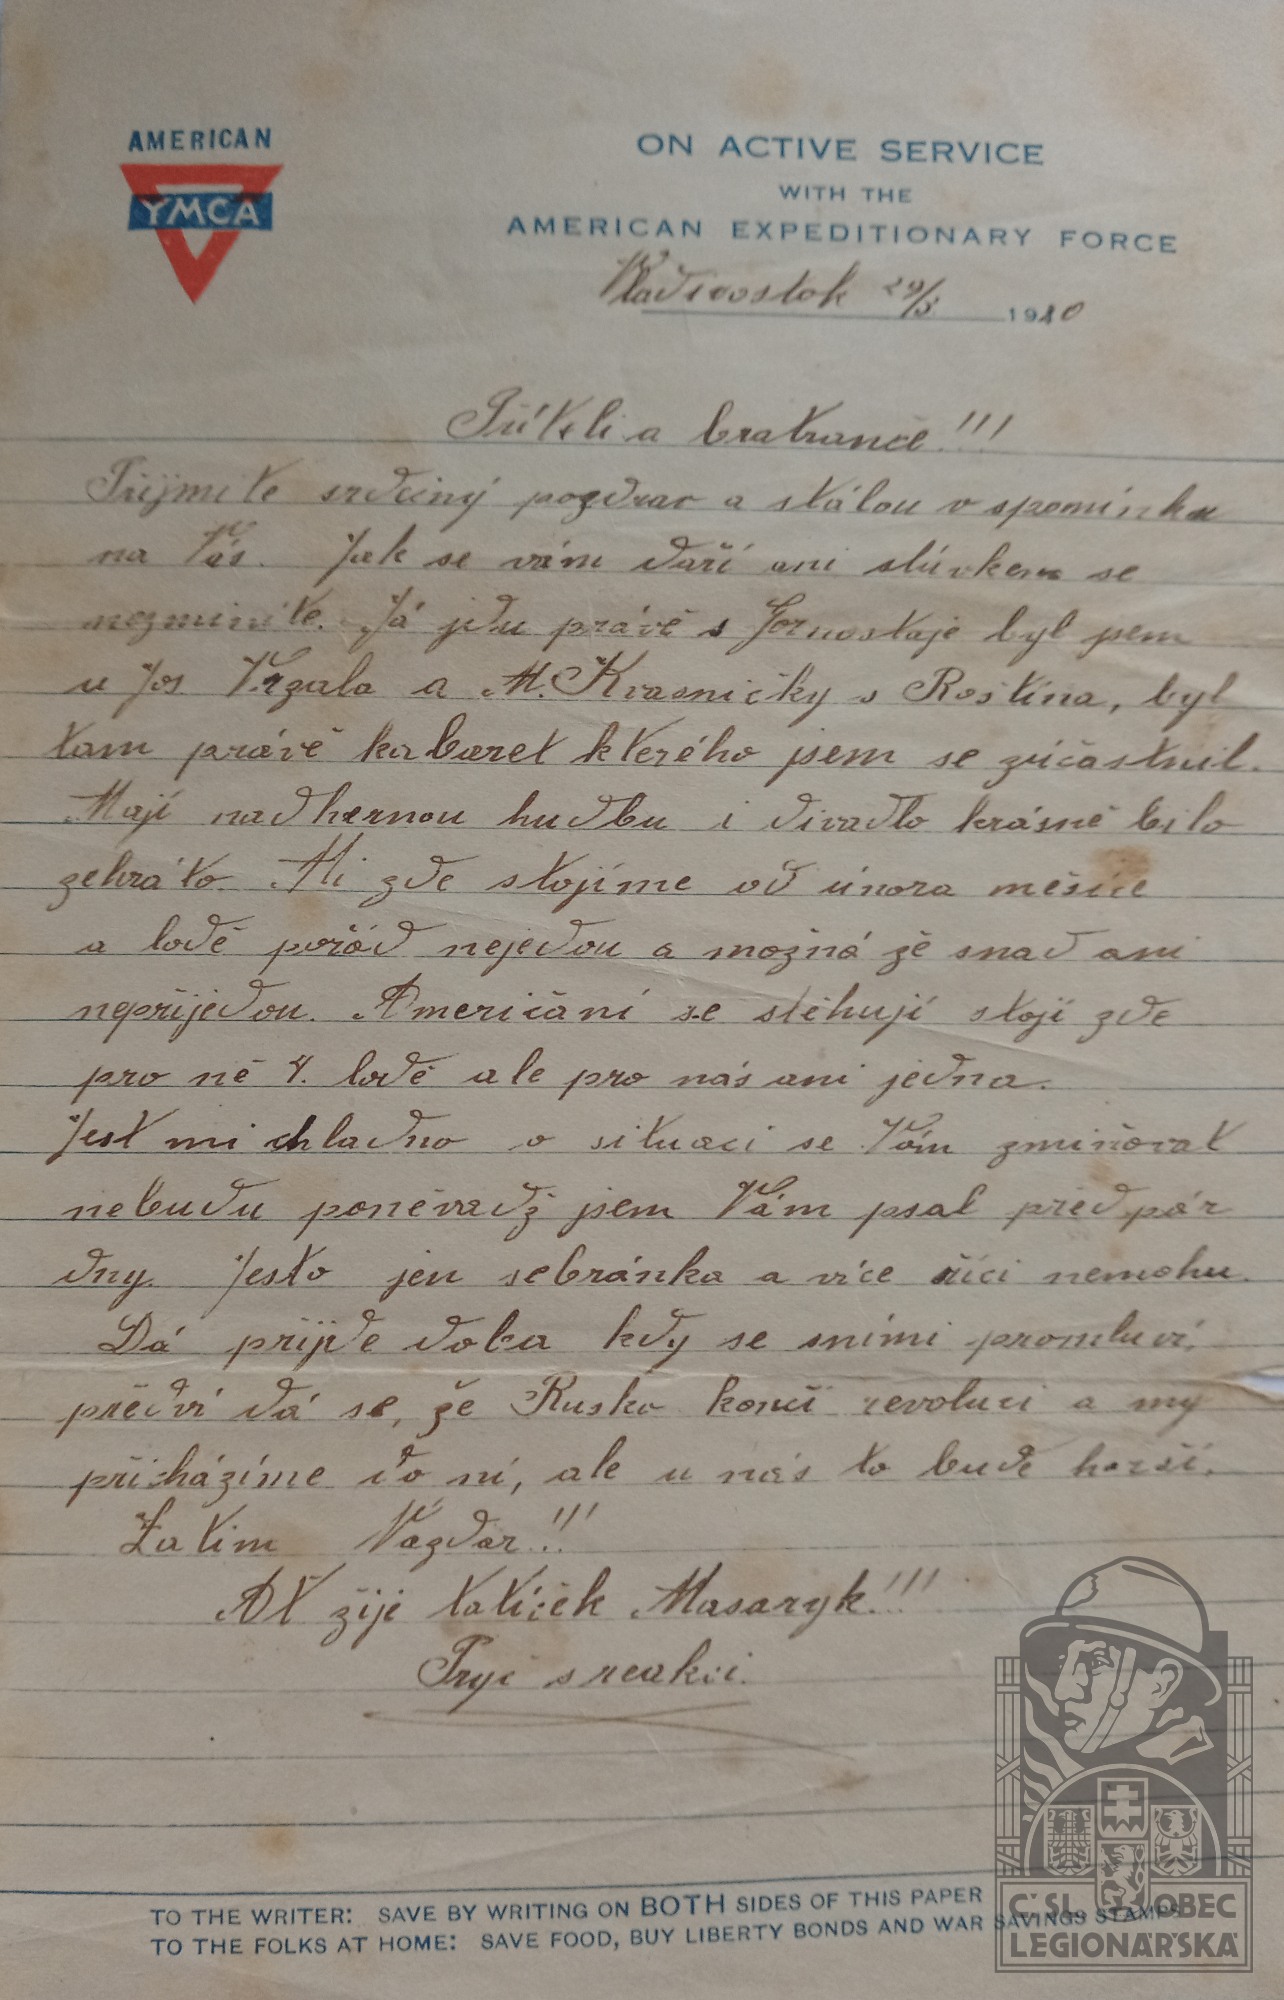 AMERICAN
YMCA
ON ACTIVE SERVICE
WITH THE
AMERICAN EXPEDITIONARY FORCE
Vladivostok 29/3 1920
Příteli a bratranče!!!
Přijmite srdečný pozdrav a stálou vspomínku
na Vás. Jak se vám daří ani slúvkem se
nezminíte. Já jdu právě s Gornostaje byl jsem
u Jos Vrzala a M. Kvasničky s Roštína, byl
tam právě kabaret kterého jsem se zúčastnil.
Mají nadhernou hudbu i divadlo krásně bilo
zehráto. Mi zde stojíme od února měsíce
a lodě pořád nejedou a možná žě snad ani
nepřijedou. Američani se stěhují stojí zde
pro ně 4. lodě ale pro nás ani jedna.
Jest mi chladno o situaci se Vám zmiňovat
nebudu poněvadž jsem Vám psal před pár
dny. Jesto jen sebránka a více říci nemohu.
Dá prijde doba kdy se snimi promluví,
předvi dá se, že Rusko končí revoluci a my
přicházíme do ní, ale u nás to bude horší.
Zatim Nazdar!!!
Ať žije tatíček Masaryk!!!
Pryč s reakci.
TO THE WRITER: SAVE BY WRITING ON BOTH SIDES OF THIS PAPER
TO THE FOLKS AT HOME: SAVE FOOD, BUY LIBERTY BONDS AND WAR SAVINGS STAMPS
ČSL. OBEC
LEGIONÁŘSKÁ